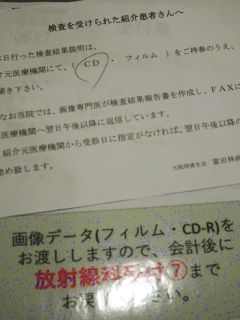 検査を受けられた紹介患者さんへ
本日行った検査結果説明は、
介元医療機関にて、( CD ・ フィルム ) をご持参のうえ、
聞き下さい。
なお当院では、画像専門医が検査結果報告書を作成し、FAXに
医療機関へ翌日午後以降に返信しています。
紹介元医療機関から受診日に指定がなければ、翌日午後以降
勧め致します。
大阪府済生会 富田林病
画像データ(フィルム・CD-R)を
お渡ししますので、会計後に
放射線科受付⑦まで
お戻り下さい。